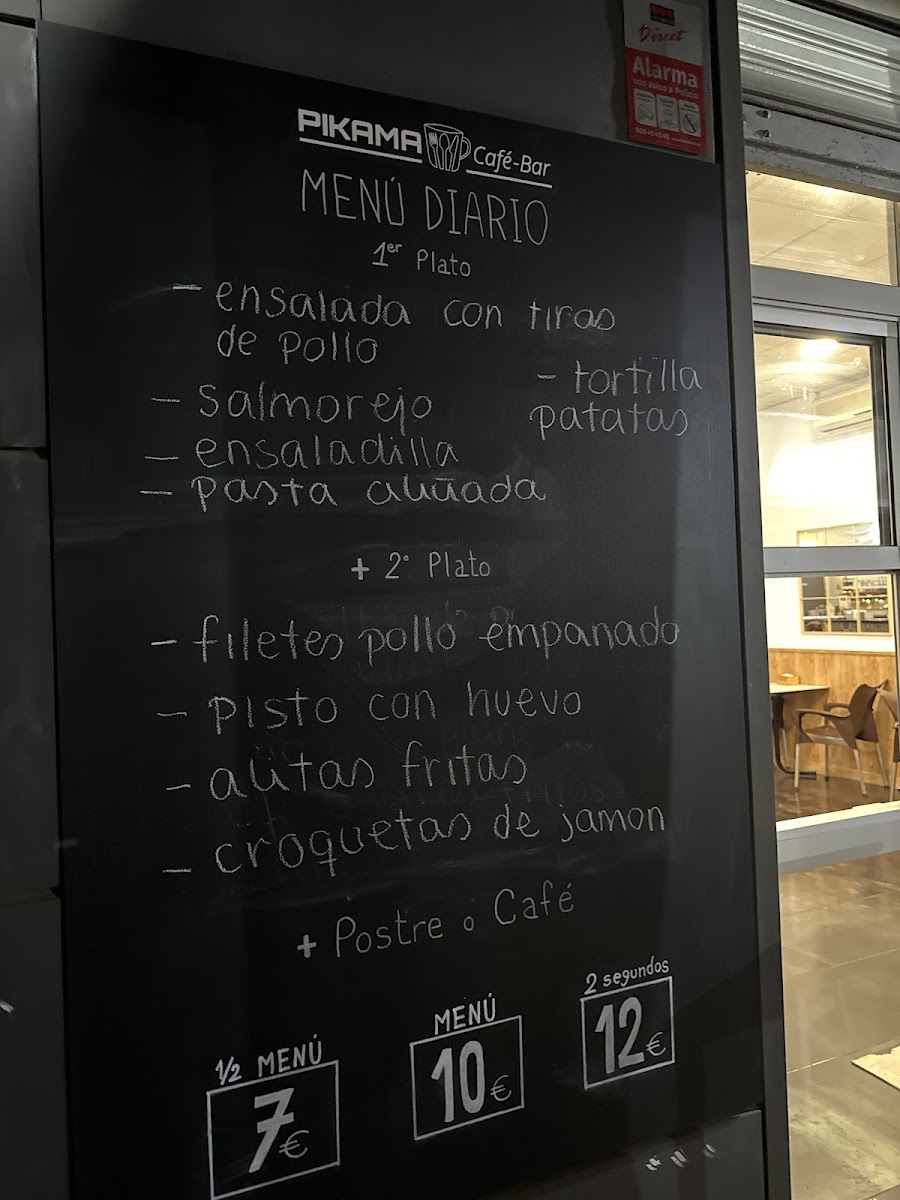 Direct
Alarma
con aviso a Policía
PIKAMA Café-Bar
MENÚ DIARIO
1er Plato
- ensalada con tiras
de pollo
- salmorejo
- ensaladilla
- pasta aliñada
- tortilla
patatas
+ 2° Plato
- filetes pollo empanado
- pisto con huevo
- alitas fritas
- croquetas de jamon
+ Postre o Café
1/2 MENÚ
7€
MENÚ
10€
2 segundos
12€